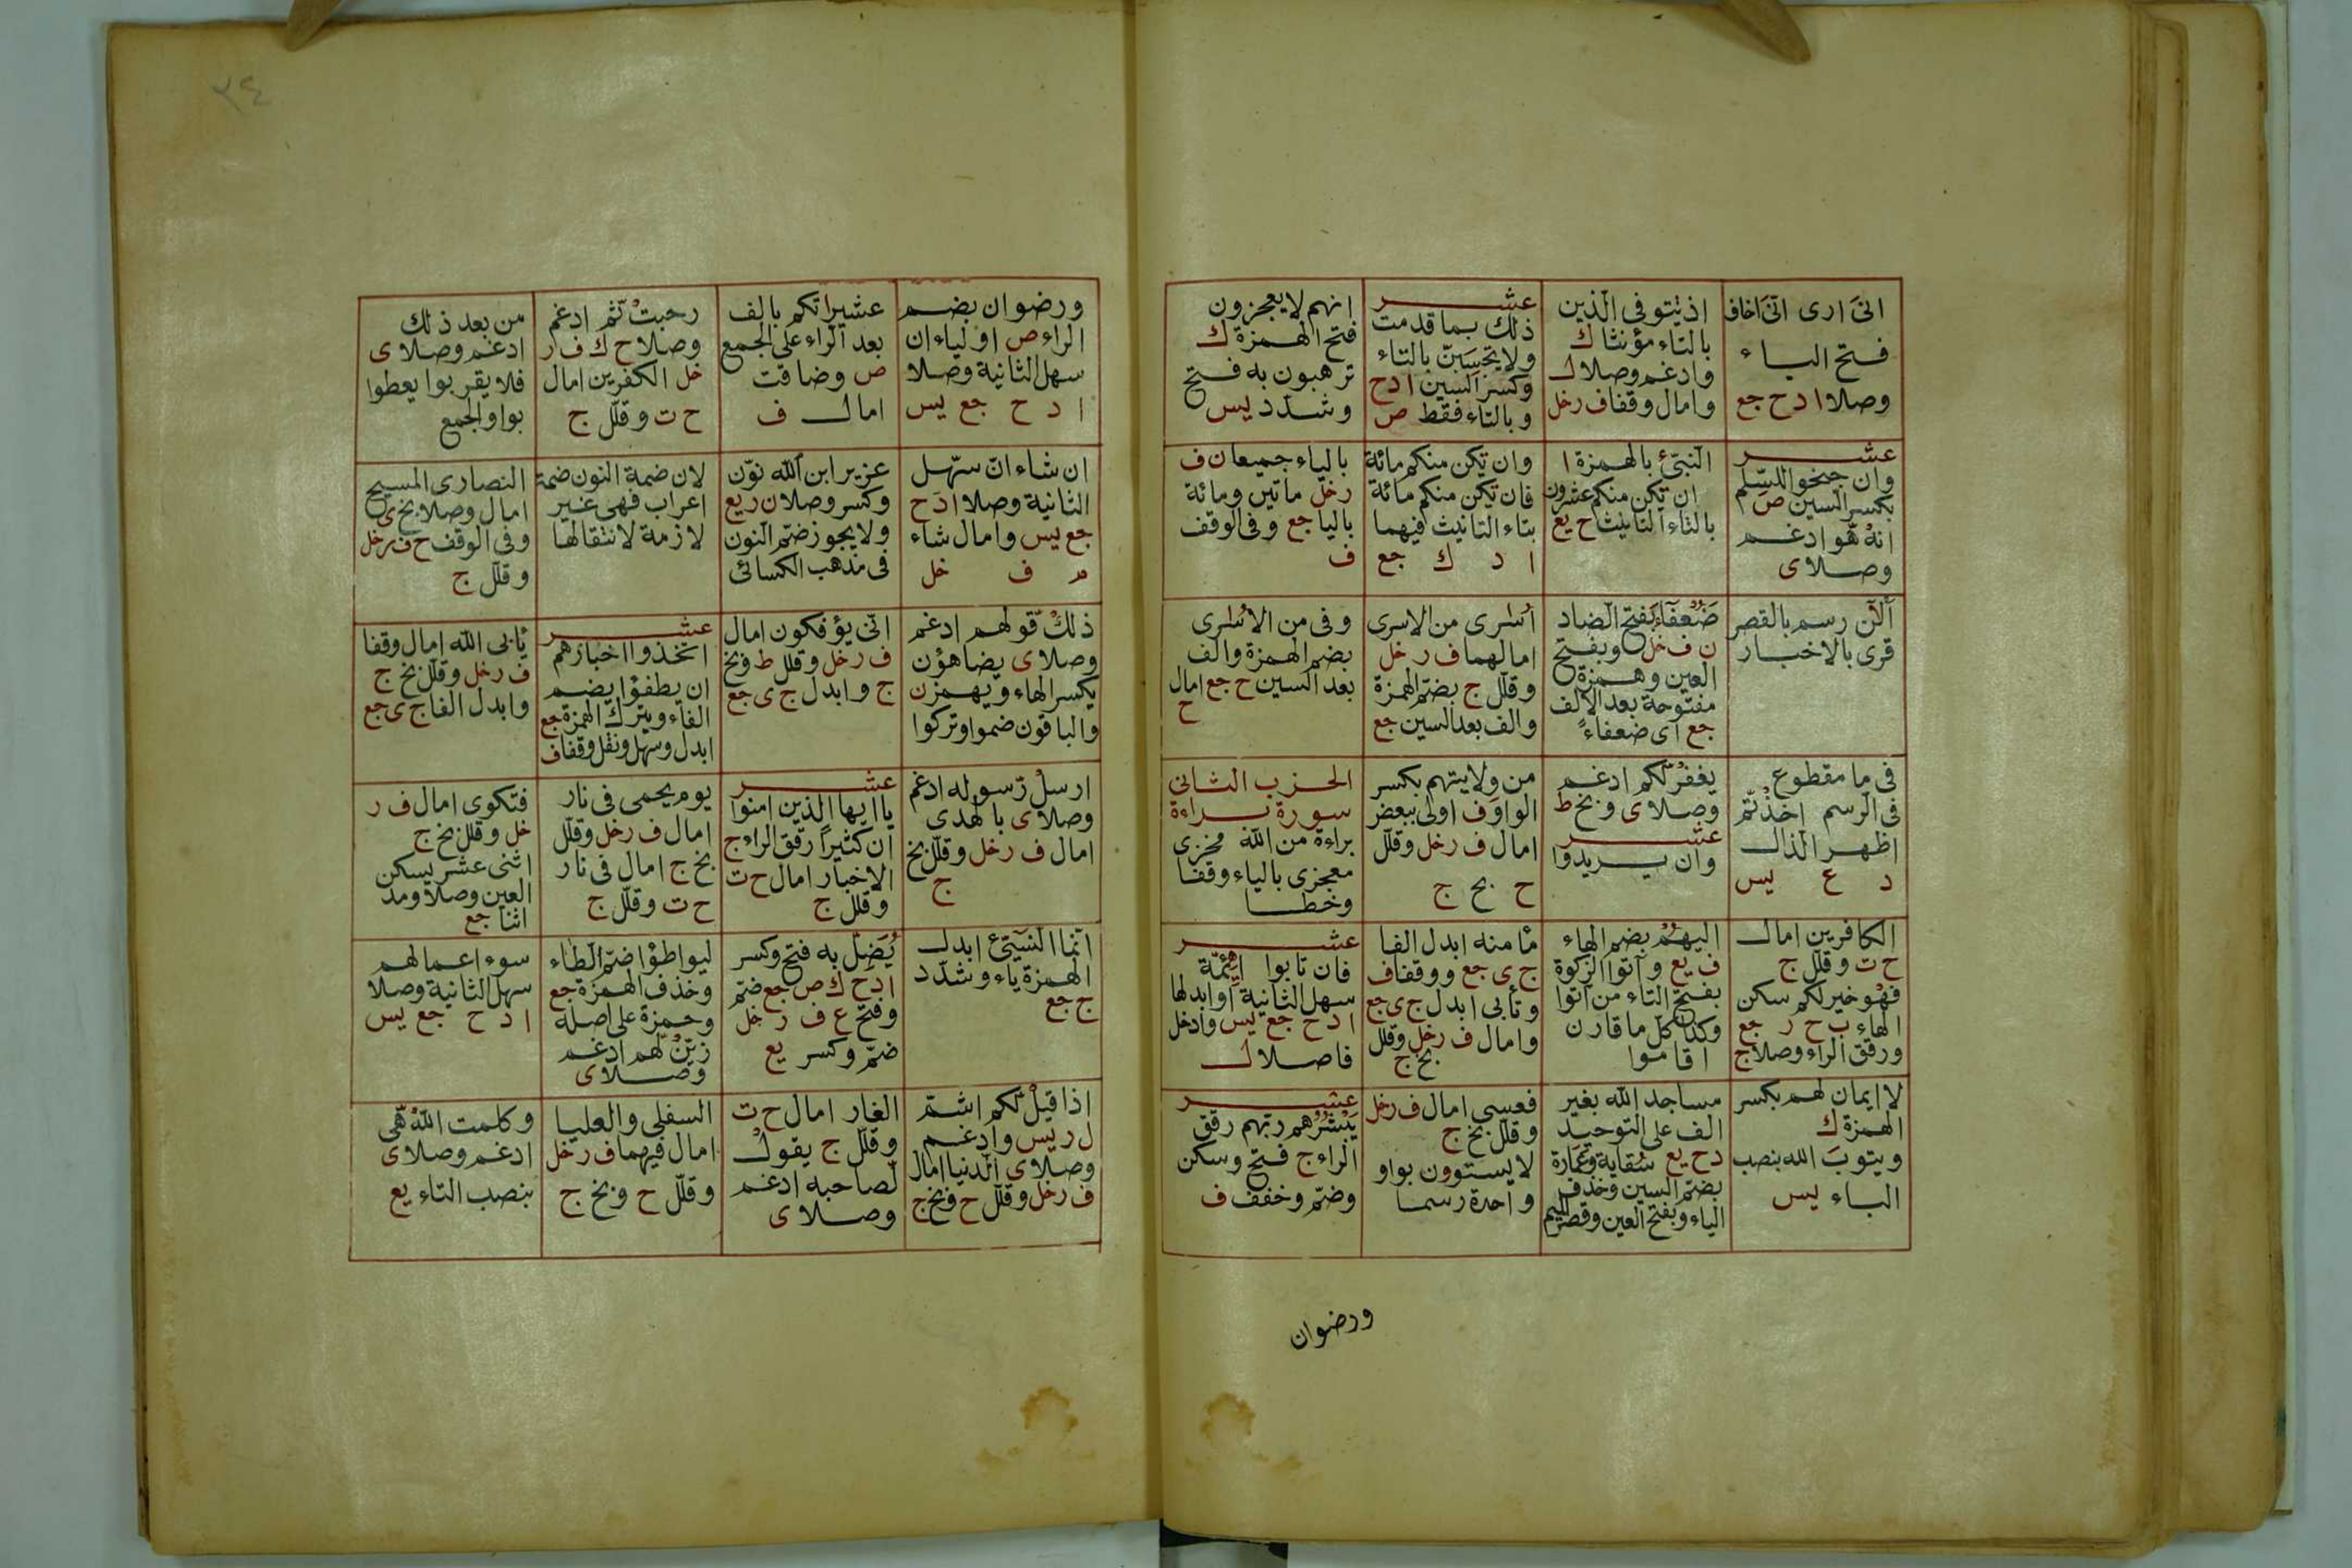 انىَ ارى انىَ اخاف
فتح الباء
وصلا ا د ح جع
اذ يتوفى الذين
بالتاء مؤنثا ك
وادغم وصلا ل
وامال وقفا ف ر خل
عشر
ذلك بما قدمت
ولا تحسبن بالتاء
وكسر السين ا د ح
وبالتاء فقط ص
انهم لا يعجزون
فتح الهمزة ك
ترهبون به فتح
وشدد يس
عشر
وان جنحوا للسلم
بكسر السين ص
انه هو ادغم
وصلا ى
النبئ بالهمزة ا
ان تكن منكم عشرون
بالتاء التانيث ح يع
وان تكن منكم مائة
فان تكن منكم مائة
بتاء التانيث فيهما
ا د ك جع
بالياء جميعا ن ف
ر خل ماتين ومائة
باليا جع وفى الوقف
ف
ألآن رسم بالقصر
قرى بالاخبار
ضعفا بفتح الضاد
ن ف خل وبفتح
العين وهمزة
مفتوحة بعد الالف
جع اى ضعفاء
أسرى من الاسرى
امالهما ف ر خل
وقلل ج بضم الهمزة
والف بعد السين جع
وفى من الاسرى
بضم الهمزة والف
بعد السين ح جع امال
ح
فى ما مقطوع
فى الرسم اخذتم
اظهر الذال
د ع يس
يغفر لكم ادغم
وصلا ى وبخ ط
عشر
وان يريدوا
من ولايتهم بكسر
الواو ف اولى ببعض
امال ف ر خل وقلل
ح بخ ج
الحزب الثانى
سورة براءة
براءة من الله مخزى
معجزى بالياء وقفا
وخطا
الكافرين امال
ح ت وقلل ج
فهو خير لكم سكن
الهاء ب ح ر جع
ورقق الراء وصلا ج
اليهم بضم الهاء
ف يع وآتوا الزكوة
بفتح التاء من آتوا
وكذا كل ما قارن
اقاموا
مأمنه ابدل الفا
ج ى جع ووقفا ف
وتأبى ابدل ج ى جع
وامال ف ر خل وقلل
بخ ج
عشر
فان تابوا ائمة
سهل الثانية او ابدلها
ا د ح جع يس وادخل
فاصلا ل
لا ايمان لهم بكسر
الهمزة ك
ويتوبَ الله بنصب
الباء يس
مساجد الله بغير
الف على التوحيد
د ح يع سقاية وعمارة
بضم السين وحذف
الياء وبفتح العين وقصر الميم
فعسى امال ف ر خل
وقلل بخ ج
لا يستوون بواو
واحدة رسما
عشر
يبشرهم ربهم رقق
الراء ج فتح وسكن
وضم وخفف ف
ورضوان
٢٤
ورضوان بضم
الراء ص اولياء ان
سهل الثانية وصلا
ا د ح جع يس
عشيراتكم بالف
بعد الراء على الجمع
ص وضاقت
امال ف
رحبت ثم ادغم
وصلا ح ك ف ر
خل الكفرين امال
ح ت وقلل ج
من بعد ذلك
ادغم وصلا ى
فلا يقربوا يعطوا
بواو الجمع
ان شاء ان سهل
الثانية وصلا ا د ح
جع يس وامال شاء
م ف خل
عزير ابن الله نون
وكسر وصلا ن ر يع
ولا يجوز ضم النون
فى مذهب الكسائى
لان ضمة النون ضمة
اعراب فهى غير
لازمة لانتقالها
النصارى المسيح
امال وصلا بخ ى
وفى الوقف ح ف ر خل
وقلل ج
ذلك قولهم ادغم
وصلا ى يضاهؤن
بكسر الهاء ويهمز ن
والباقون ضموا وتركوا
انى يؤفكون امال
ف ر خل وقلل ط وبخ
ج وابدل ج ى جع
عشر
اتخذوا احبارهم
ان يطفؤا بضم
الفاء وبترك الهمزة جع
ابدل وسهل ونقل وقفا ف
يأبى الله امال وقفا
ف ر خل وقلل بخ ج
وابدل الفا ج ى جع
ارسل رسوله ادغم
وصلا ى بالهدى
امال ف ر خل وقلل بخ
ج
عشر
يا ايها الذين امنوا
ان كثيرا رقق الراء ج
الاخبار امال ح ت
وقلل ج
يوم يحمى فى نار
امال ف ر خل وقلل
بخ ج امال فى نار
ح ت وقلل ج
فتكوى امال ف ر
خل وقلل بخ ج
اثنى عشر يسكن
العين وصلا ومد
اثنا جع
انما النسئ ابدل
الهمزة ياء وشدد
ج جع
يُضِلّ به فتح وكسر
ا د ح ك ص جع ضم
وفتح ع ف ر خل
ضم وكسر يع
ليواطؤا ضم الطاء
وحذف الهمزة جع
وحمزة على اصله
زين لهم ادغم
وصلا ى
سوء اعمالهم
سهل الثانية وصلا
ا د ح جع يس
اذا قيل لكم اشم
ل ر يس وادغم
وصلا ى الدنيا امال
ف ر خل وقلل ح وبخ ج
الغار امال ح ت
وقلل ج يقول
لصاحبه ادغم
وصلا ى
السفلى والعليا
امال فيهما ف ر خل
وقلل ح وبخ ج
وكلمت الله هى
ادغم وصلا ى
بنصب التاء يع